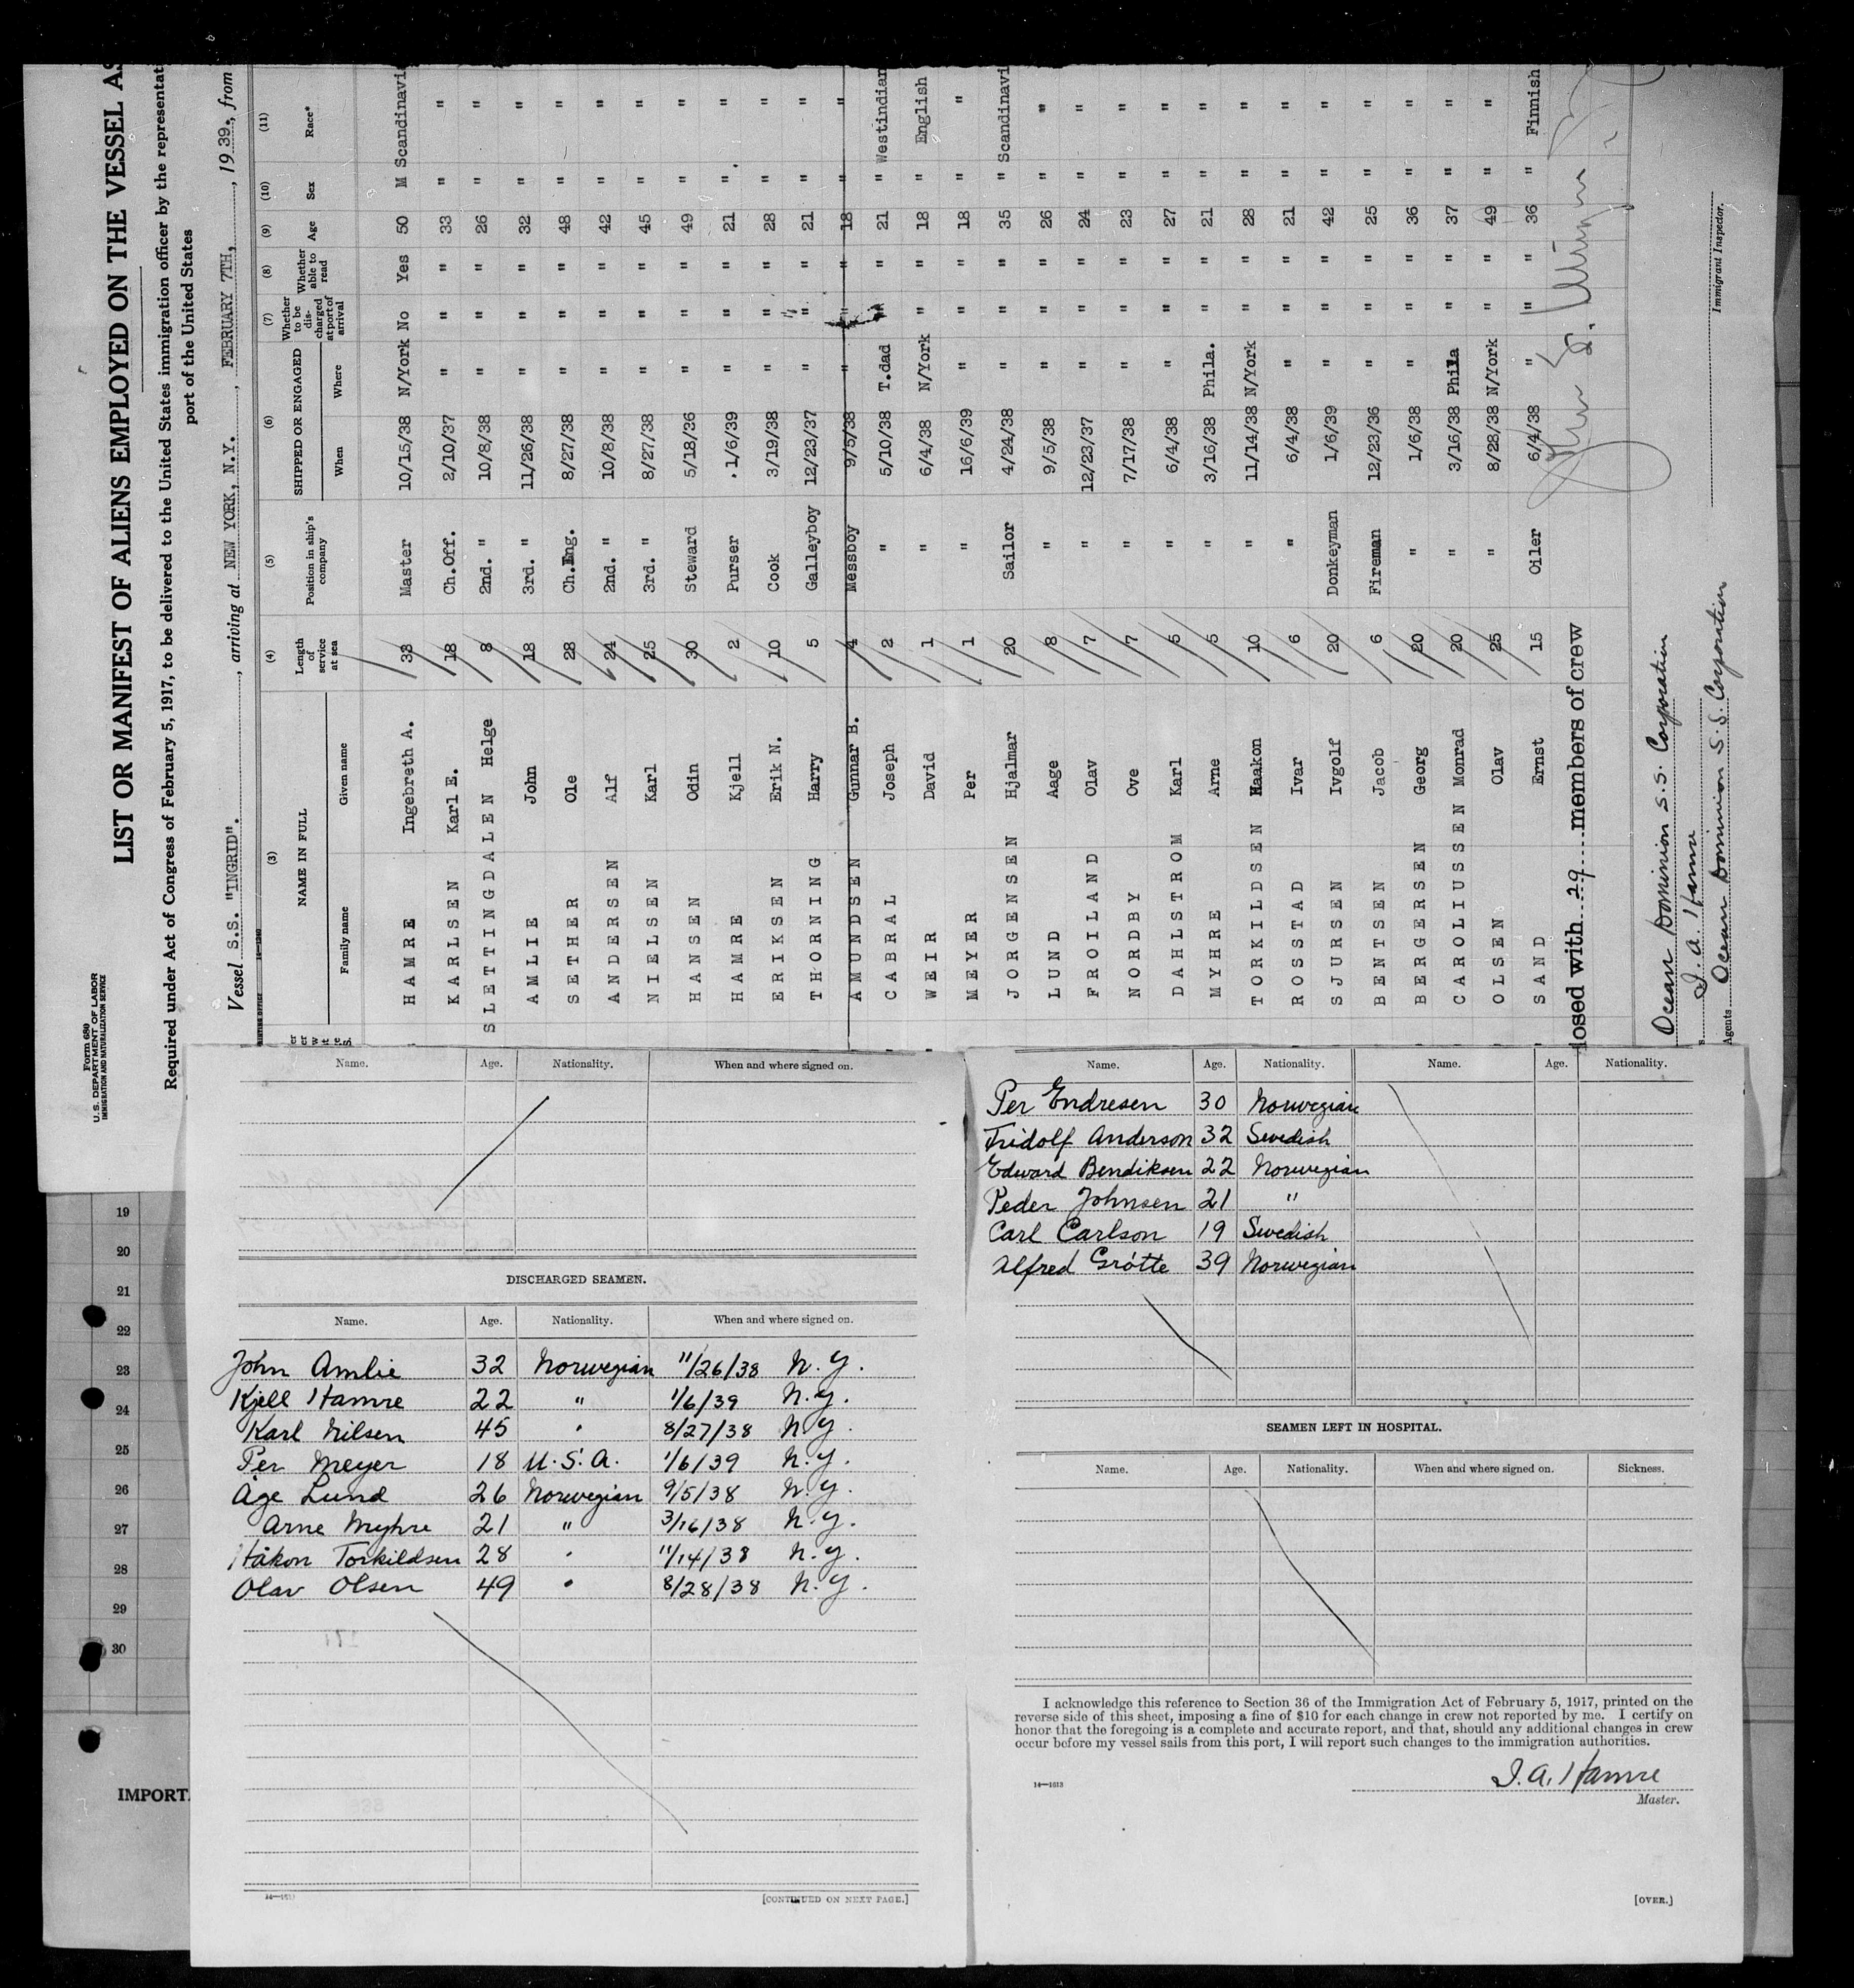 Form 680
U.S. DEPARTMENT OF LABOR
IMMIGRATION AND NATURALIZATION SERVICE
LIST OR MANIFEST OF ALIENS EMPLOYED ON THE VESSEL AS
Required under Act of Congress of February 5, 1917, to be delivered to the United States immigration officer by the representat
port of the United States
Vessel S.S. "INGRID"., arriving at NEW YORK, N.Y., FEBRUARY 7TH, 1939, from
(3) (4) (5) (6) (7) (8) (9) (10) (11)
NAME IN FULL Length of service at sea Position in ship's company SHIPPED OR ENGAGED Whether to be discharged at port of arrival Whether able to read Age Sex Race*
Family name Given name When Where
HAMRE Ingebreth A. 33 Master 10/15/38 N/York No Yes 50 M Scandinavi
KARLSEN Karl E. 18 Ch.Off. 2/10/37 " " " 33 " "
SLETTINGDALEN Helge 8 2nd. " 10/8/38 " " " 26 " "
AMLIE John 18 3rd. " 11/26/38 " " " 32 " "
SETHER Ole 28 Ch.Eng. 8/27/38 " " " 48 " "
ANDERSEN Alf 24 2nd. " 10/8/38 " " " 42 " "
NIELSEN Karl 25 3rd. " 8/27/38 " " " 45 " "
HANSEN Odin 30 Steward 5/18/36 " " " 49 " "
HAMRE Kjell 2 Purser 1/6/39 " " " 21 " "
ERIKSEN Erik N. 10 Cook 3/19/38 " " " 28 " "
THORNING Harry 5 Galleyboy 12/23/37 " " " 21 " "
AMUNDSEN Gunnar B. 4 Messboy 9/5/38 " " " 18 " "
CABRAL Joseph 2 " 5/10/38 T.dad " " 21 " Westindian
WEIR David 1 " 6/4/38 N/York " " 18 " English
MEYER Per 1 " 16/6/39 " " " 18 " "
JORGENSEN Hjalmar 20 Sailor 4/24/38 " " " 35 " Scandinavi
LUND Aage 8 " 9/5/38 " " " 26 " "
FROILAND Olav 7 " 12/23/37 " " " 24 " "
NORDBY Ove 7 " 7/17/38 " " " 23 " "
DAHLSTROM Karl 5 " 6/4/38 " " " 27 " "
MYHRE Arne 5 " 3/16/38 Phila. " " 21 " "
TORKILDSEN Haakon 10 " 11/14/38 N/York " " 28 " "
ROSSTAD Ivar 6 " 6/4/38 " " " 21 " "
SJURSEN Ivgolf 20 Donkeyman 1/6/39 " " " 42 " "
BENTSEN Jacob 6 Fireman 12/23/36 " " " 25 " "
BERGERSEN Georg 20 " 1/6/38 " " " 36 " "
CAROLIUSSEN Monrad 20 " 3/16/38 Phila " " 37 " "
OLSEN Olav 25 " 8/28/38 N/York " " 49 " "
SAND Ernst 15 Oiler 6/4/38 " " " 36 " Finnish
losed with 29 members of crew
Ocean Dominion S.S. Corporation
I. A. Hamre
Agents Ocean Dominion S.S. Corporation
Immigrant Inspector.
19
20
21
22
23
24
25
26
27
28
29
30
IMPORTA
Name. Age. Nationality. When and where signed on.
DISCHARGED SEAMEN.
Name. Age. Nationality. When and where signed on.
John Amlie 32 Norwegian 11/26/38 N.Y.
Kjell Hamre 22 " 1/6/39 N.Y.
Karl Nilsen 45 " 8/27/38 N.Y.
Per Meyer 18 U.S.A. 1/6/39 N.Y.
Åge Lund 26 Norwegian 9/5/38 N.Y.
Arne Myhre 21 " 3/16/38 N.Y.
Håkon Torkildsen 28 " 11/14/38 N.Y.
Olav Olsen 49 " 8/28/38 N.Y.
[CONTINUED ON NEXT PAGE.]
Name. Age. Nationality. Name. Age. Nationality.
Per Endresen 30 Norwegian
Fridolf Anderson 32 Swedish
Edward Bendiksen 22 Norwegian
Peder Johnsen 21 "
Carl Carlson 19 Swedish
Alfred Grótte 39 Norwegian
SEAMEN LEFT IN HOSPITAL.
Name. Age. Nationality. When and where signed on. Sickness.
I acknowledge this reference to Section 36 of the Immigration Act of February 5, 1917, printed on the
reverse side of this sheet, imposing a fine of $10 for each change in crew not reported by me. I certify on
honor that the foregoing is a complete and accurate report, and that, should any additional changes in crew
occur before my vessel sails from this port, I will report such changes to the immigration authorities.
14—1613
I. A. Hamre
Master.
[OVER.]